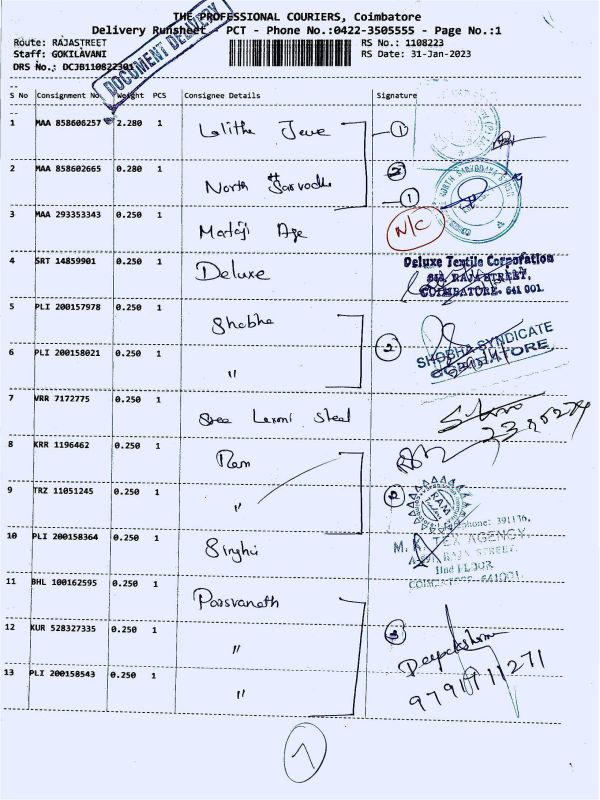 THE PROFESSIONAL COURIERS, Coimbatore
Delivery Runsheet PCT - Phone No.:0422-3505555 - Page No.:1
DOCUMENT DELIVERY
Route: RAJASTREET
RS No.: 1108223
Staff: GOKILAVANI
RS Date: 31-Jan-2023
DRS No.: DCJB110822301
S No Consignment No Weight PCS Consignee Details Signature
1 MAA 858606257 2.280 1 Lalitha 1
2 MAA 858602665 0.280 1 North Sarvodha 1
3 MAA 293353343 0.250 1 Mataji Age N/C
4 SRT 14859901 0.250 1 Deluxe
Deluxe Textile Corporation
RAJA STREET,
COIMBATORE. 641 001.
5 PLI 200157978 0.250 1 Shobha
6 PLI 200158021 0.250 1 " 2
SHOBHA SYNDICATE
COIMBATORE.
7 VRR 7172775 0.250 1 Sree Laxmi Steel
8 KRR 1196462 0.250 1 Ram
9 TRZ 11051245 0.250 1 "
RAM
Phone: 391136,
10 PLI 200158364 0.250 1 Singhvi
M. K. TEX AGENCY,
RAJA STREET,
IInd FLOOR
COIMBATORE-641001.
11 BHL 100162595 0.250 1 Parsvanath
12 KUR 528327335 0.250 1 " 3
13 PLI 200158543 0.250 1 "
9791111271
1